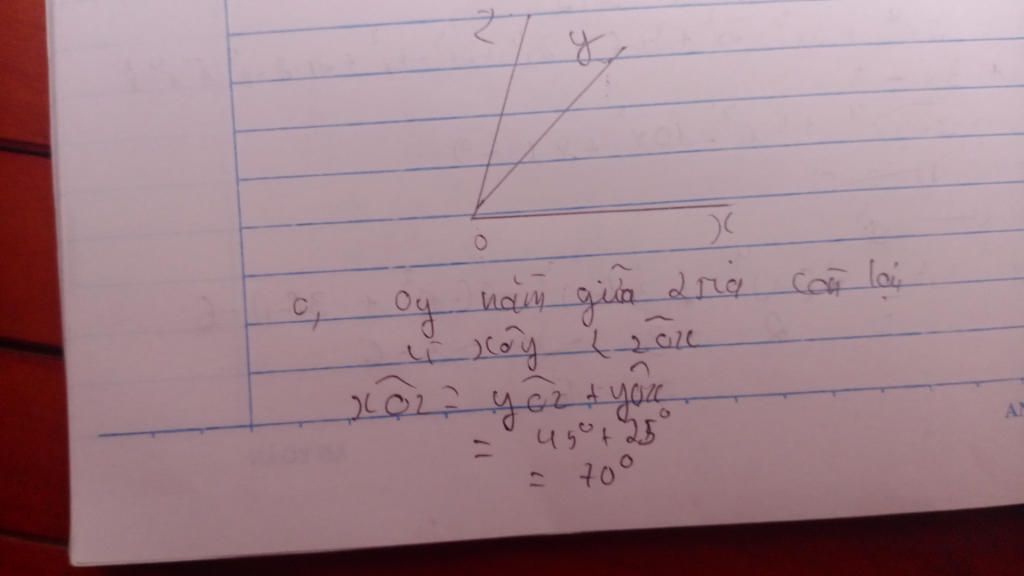 z
y
O
x
c, Oy nằm giữa 2 tia còn lại
vì xÔy < zÔx
xÔz = yÔz + yÔx
= 45° + 25°
= 70°